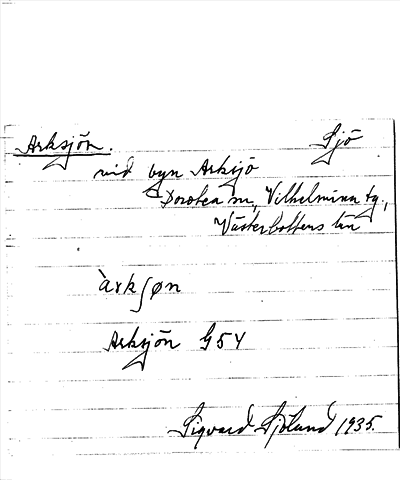 Arksjön. Sjö
vid byn Arksjö
Dorotea sn, Vilhelmina tg.,
Västerbottens län
àrkʃøn
Arksjön G5Y
Sigvard Sjölund 1935.